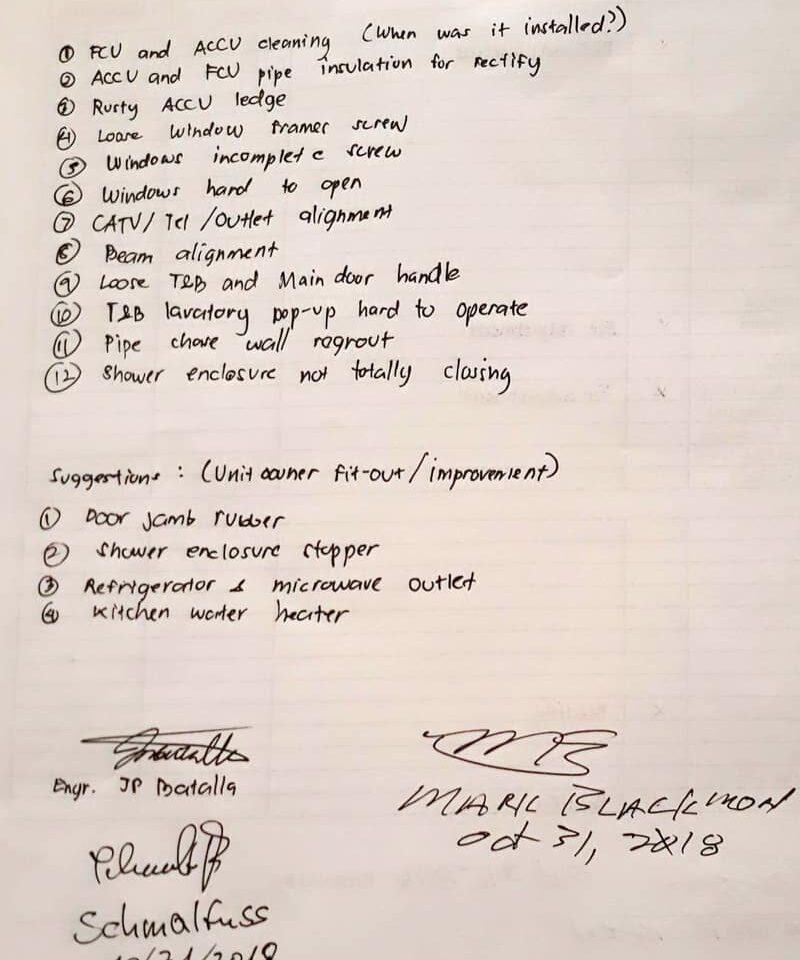 ① FCU and ACCU cleaning (When was it installed?)
② ACCU and FCU pipe insulation for rectify
③ Rusty ACCU ledge
④ Loose window frames screw
⑤ Windows incomplete screw
⑥ Windows hard to open
⑦ CATV/Tel/Outlet alignment
⑧ Beam alignment
⑨ Loose T&B and Main door handle
⑩ T&B lavatory pop-up hard to operate
⑪ Pipe chase wall regrout
⑫ Shower enclosure not totally closing
Suggestions: (Unit owner fit-out/improvement)
① Door jamb rubber
② Shower enclosure stopper
③ Refrigerator & microwave outlet
④ Kitchen water heater
Engr. JP Batalla
MARK BLACKMON
Oct 31, 2018
Schmalfuss
10/31/2018